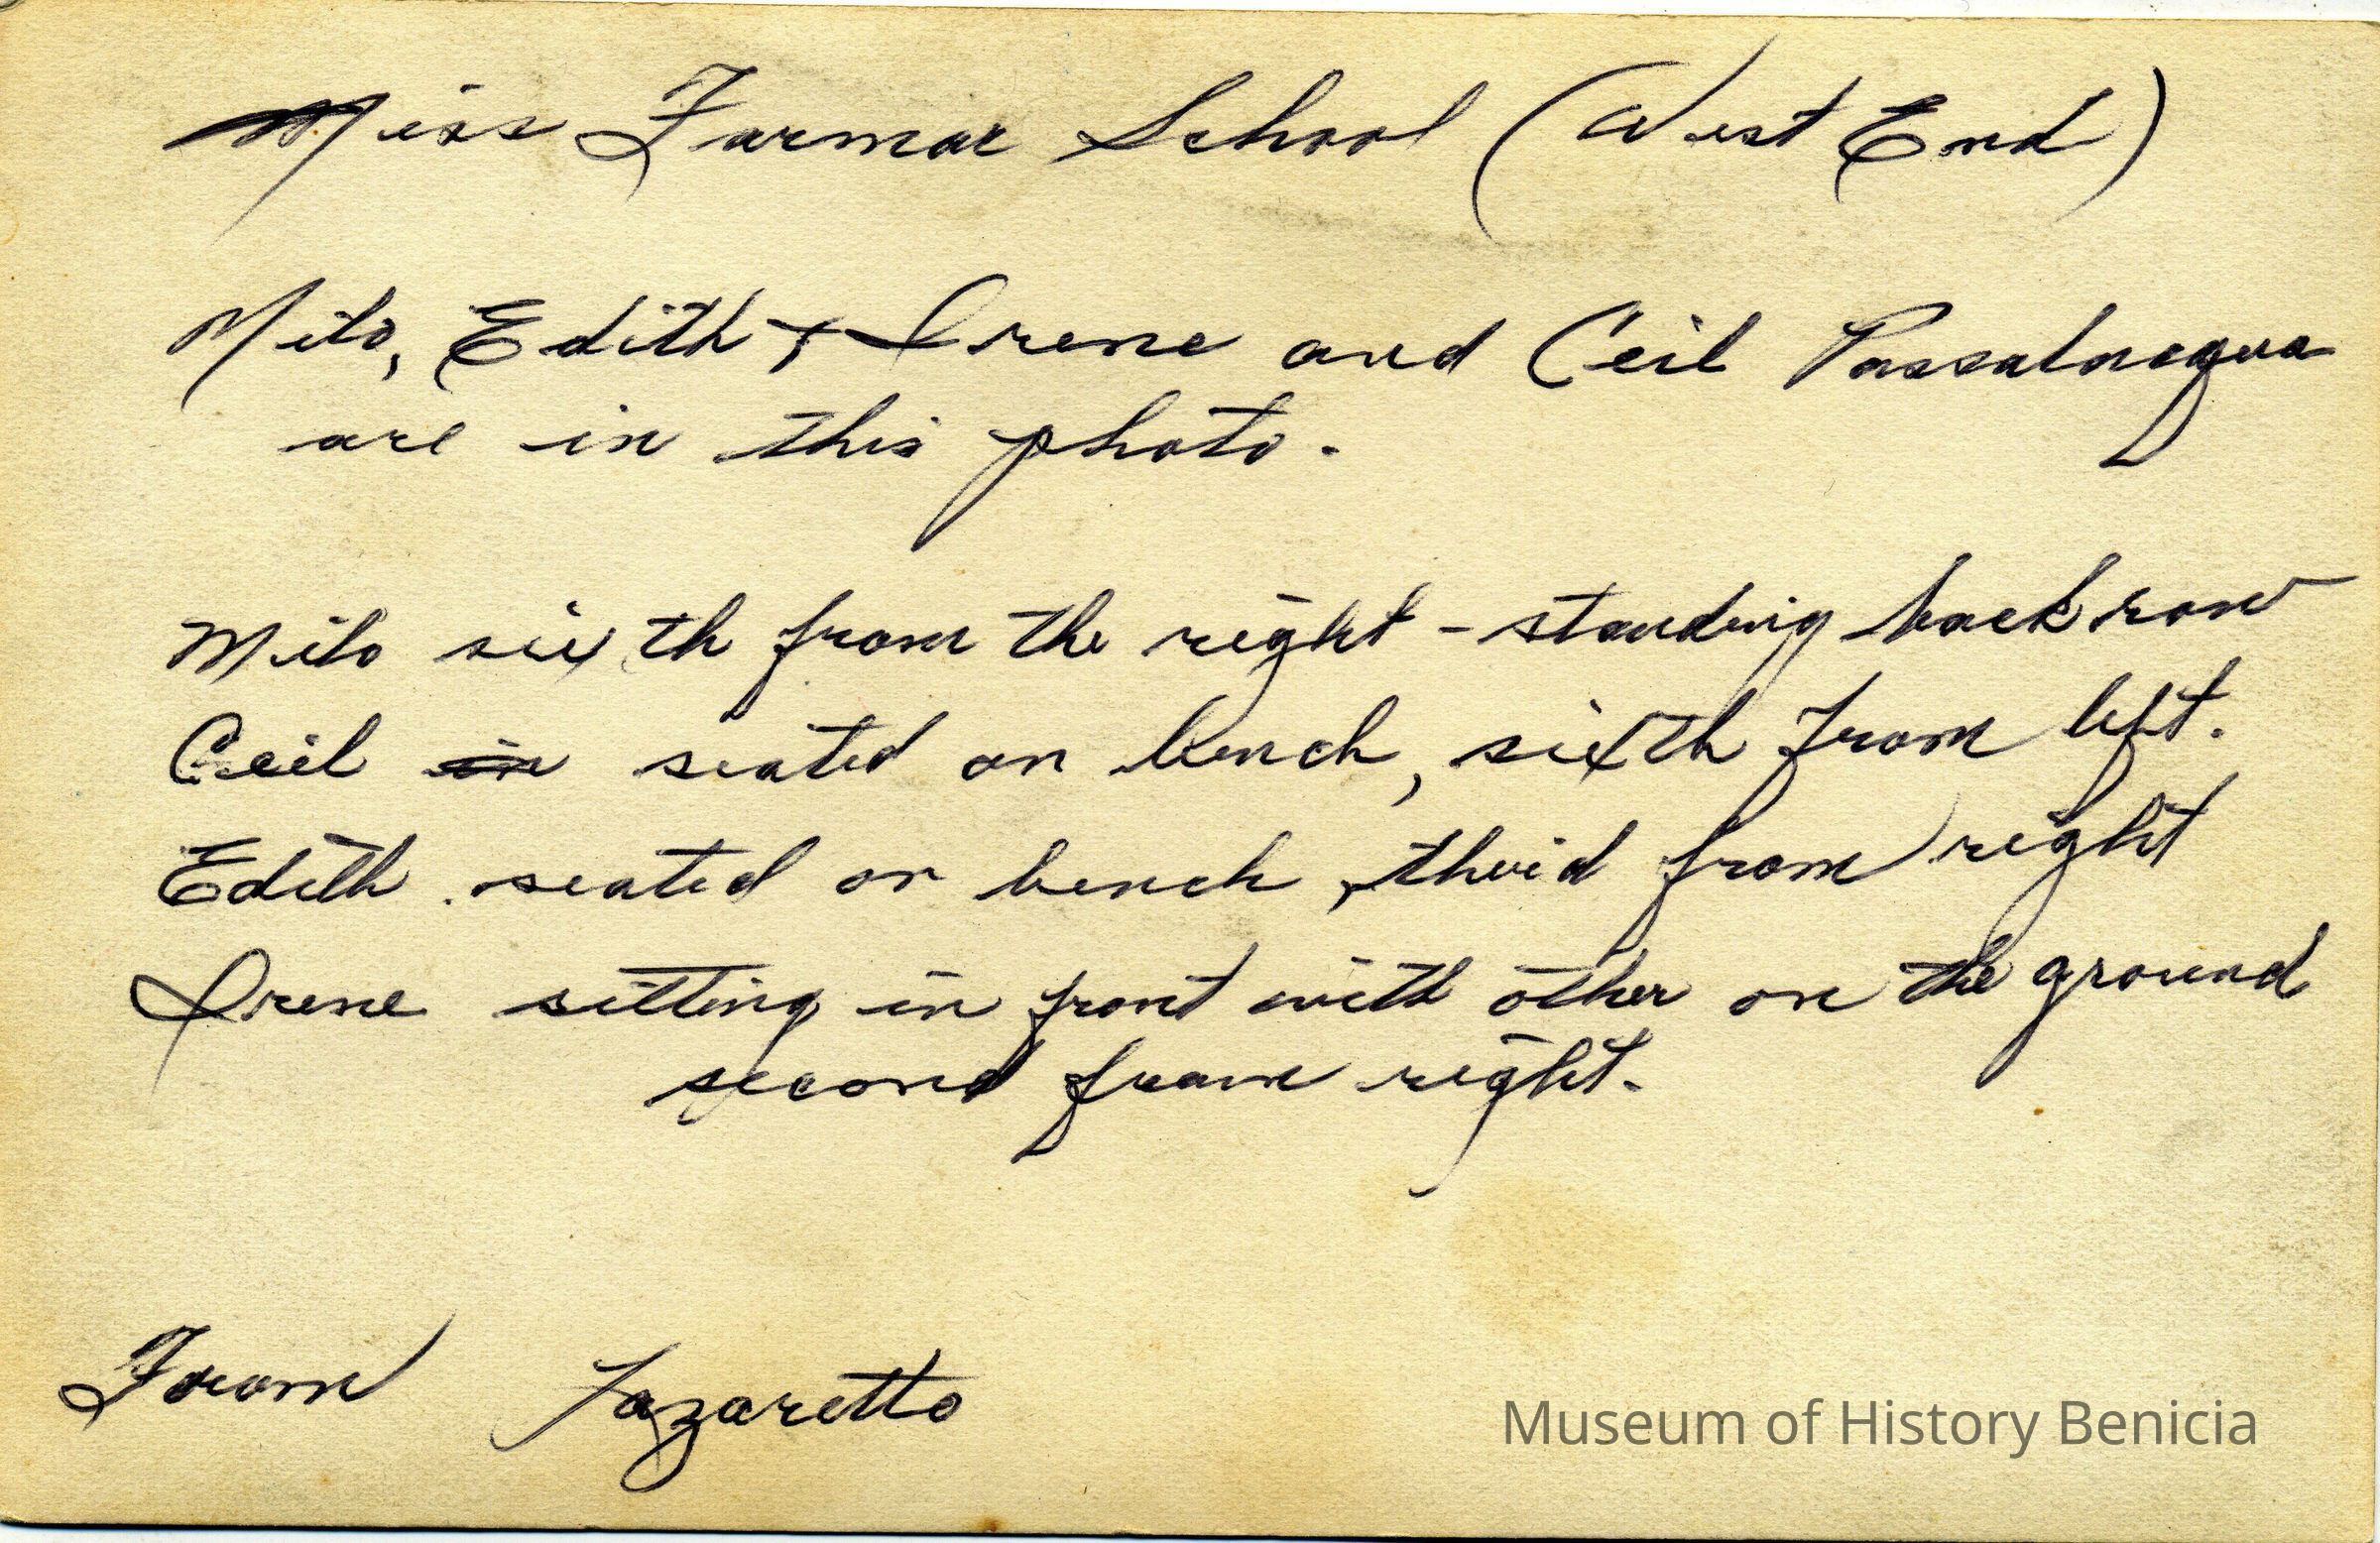 Miss Farmar School (West End)
Milo, Edith + Irene and Ceil Passalacqua
are in this photo.
Milo sixth from the right - standing back row
Ceil in seated on bench, sixth from left.
Edith seated on bench, third from right
Irene sitting in front with other on the ground
second from right.
From Lazaretto
Museum of History Benicia